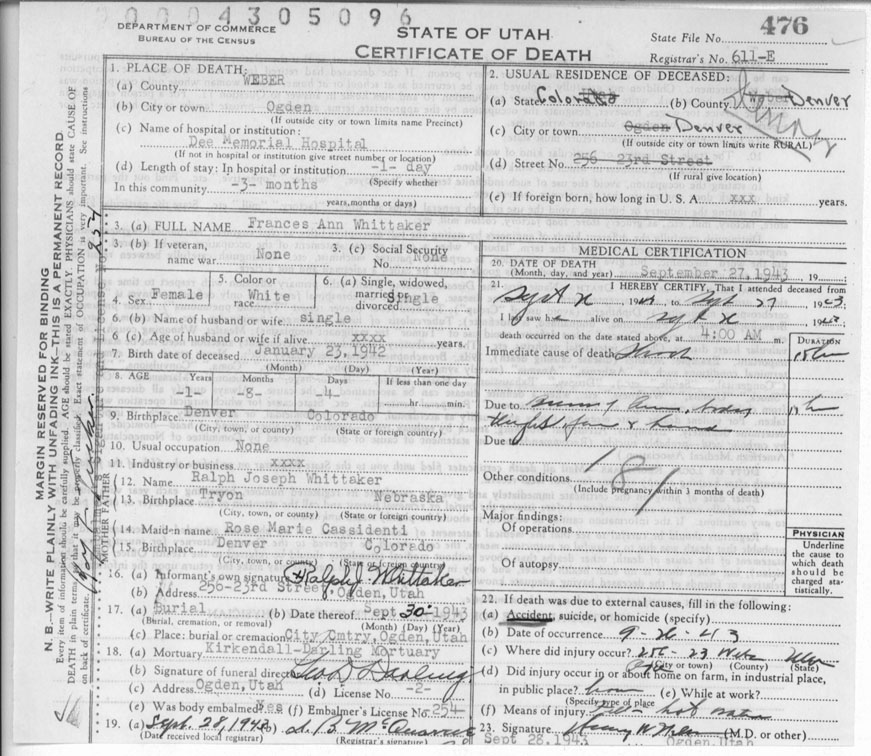 00004305096
DEPARTMENT OF COMMERCE
BUREAU OF THE CENSUS
STATE OF UTAH
CERTIFICATE OF DEATH
State File No. 476
Registrar's No. 611-E
MARGIN RESERVED FOR BINDING
N. B.—WRITE PLAINLY WITH UNFADING INK—THIS IS A PERMANENT RECORD
Every item of information should be carefully supplied. AGE should be stated EXACTLY. PHYSICIANS should state CAUSE OF
DEATH in plain terms, so that it may be properly classified. Exact statement of OCCUPATION is very important. See instructions
on back of certificate.
1. PLACE OF DEATH:
(a) County WEBER
(b) City or town Ogden
(If outside city or town limits name Precinct)
(c) Name of hospital or institution:
Dee Memorial Hospital
(If not in hospital or institution give street number or location)
(d) Length of stay: In hospital or institution -1- day
(Specify whether
In this community -3- months
years, months or days)
2. USUAL RESIDENCE OF DECEASED:
(a) State Colorado (b) County Weber Denver
(c) City or town Ogden Denver
(If outside city or town limits write RURAL)
(d) Street No. 256 23rd Street
(If rural give location)
(e) If foreign born, how long in U. S. A. xxx years.
3. (a) FULL NAME Frances Ann Whittaker
3. (b) If veteran, name war None
3. (c) Social Security No. None
4. Sex Female
5. Color or race White
6. (a) Single, widowed, married or divorced Single
6. (b) Name of husband or wife single
6 (c) Age of husband or wife if alive xxxx years.
7. Birth date of deceased January 23, 1942
(Month) (Day) (Year)
8. AGE Years Months Days If less than one day
-1- -8- -4- hr. min.
9. Birthplace Denver Colorado
(City, town, or county) (State or foreign country)
10. Usual occupation None
11. Industry or business xxxx
FATHER
12. Name Ralph Joseph Whittaker
13. Birthplace Tryon Nebraska
(City, town, or county) (State or foreign country)
MOTHER
14. Maiden name Rose Marie Cassidenti
15. Birthplace Denver Colorado
(City, town, or county) (State or foreign country)
16. (a) Informant's own signature Ralph J Whittaker
(b) Address 256-23rd Street, Ogden, Utah
17. (a) Burial (b) Date thereof Sept 30 1943
(Burial, cremation, or removal) (Month) (Day) (Year)
(c) Place: burial or cremation City Cmtry, Ogden, Utah
18. (a) Mortuary Kirkendall-Darling Mortuary
(b) Signature of funeral director Geo D Darling
(c) Address Ogden, Utah (d) License No. -2-
(e) Was body embalmed Yes (f) Embalmer's License No. 254
19. (a) Sept. 28, 1943 (b)
(Date received local registrar) (Registrar's signature)
MEDICAL CERTIFICATION
20. DATE OF DEATH
(Month, day, and year) September 27, 1943 19
21. I HEREBY CERTIFY, That I attended deceased from
Sept 19 to Sept 27 1943
I last saw h alive on 19
death occurred on the date stated above, at 4:00 AM m.
DURATION
Immediate cause of death Shock
Due to
Due to
Other conditions
(Include pregnancy within 3 months of death)
181
Major findings:
Of operations
Of autopsy
PHYSICIAN
Underline
the cause to
which death
should be
charged sta-
tistically.
22. If death was due to external causes, fill in the following:
(a) Accident, suicide, or homicide (specify)
(b) Date of occurrence 9-26-43
(c) Where did injury occur? 256-23 Weber Utah
(City or town) (County) (State)
(d) Did injury occur in or about home on farm, in industrial place,
in public place? home (e) While at work?
(Specify type of place
(f) Means of injury hot water
23. Signature (M.D. or other)
Sept 28, 1943 Ogden, Utah